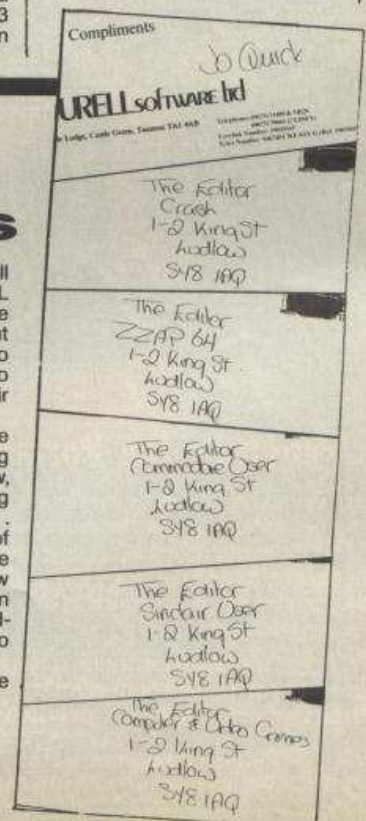 3
n
Compliments
Jo Quick
URELL software ltd
Lodge, Castle Green, Taunton TA1 4AB
The Editor
Crash
1-2 King St
Ludlow
SY8 1AQ
The Editor
ZZAP 64
1-2 King St.
Ludlow
SY8 1AQ
The Editor
Commodore User
1-2 King St
Ludlow
SY8 1AQ
The Editor
Sinclair User
1-2 King St
Ludlow
SY8 1AQ
The Editor
Computer & Video Games
1-2 King St
Ludlow
SY8 1AQ
s
ll
L
e
t
o
o
ir
e
g
w,
g
.
of
e
e
w
n
d-
o
e